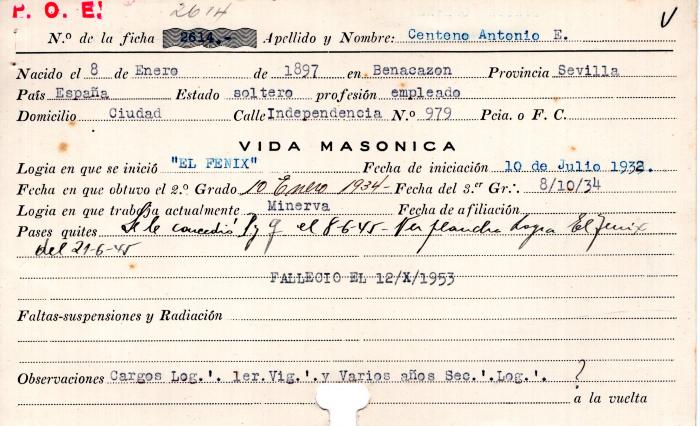 P. O. E.
2614
V
N.º de la ficha 2614.- Apellido y Nombre: Centeno Antonio E.
Nacido el 8 de Enero de 1897 en Benacazon Provincia Sevilla
País España Estado soltero profesión empleado
Domicilio Ciudad Calle Independencia N.º 979 Pcia. o F. C.
VIDA MASONICA
Logia en que se inició "EL FENIX" Fecha de iniciación 10 de Julio 1932.
Fecha en que obtuvo el 2.º Grado 10 Enero 1934- Fecha del 3.er Gr∴ 8/10/34
Logia en que trabaja actualmente Minerva Fecha de afiliación
Pases quites Se le concedió P y Q el 8-6-45- Ver plancha Logia El Fenix
del 21-6-45
FALLECIO EL 12/X/1953
Faltas-suspensiones y Radiación
Observaciones Cargos Log.'. 1er.Vig.'.y Varios años Sec.'.Log.'. ?
a la vuelta